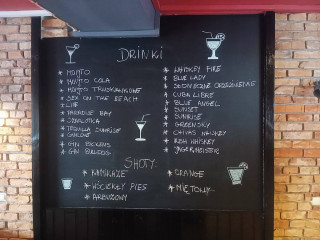 DRINKI
* MOJITO
* MOJITO COLA
* MOJITO TRUSKAWKOWE
* SEX ON THE BEACH
* PARADISE BAY
* TEQUILA SUNRISE
* GIN
* GIN BULLDOG
* WHISKEY FIRE
* BLUE LADY
* SŁONECZNE ORZEŹWIENIE
* CUBA LIBRE
* BLUE ANGEL
* SUNSET
* SUNRISE
* GREEN SKY
* CHIVAS WHISKEY
* IRISH WHISKEY
* JÄGERMEISTER
SHOTY:
* KAMIKAZE
* WŚCIEKŁY PIES
* ARBUZOWY
* ORANGE
* MIĘTOWY